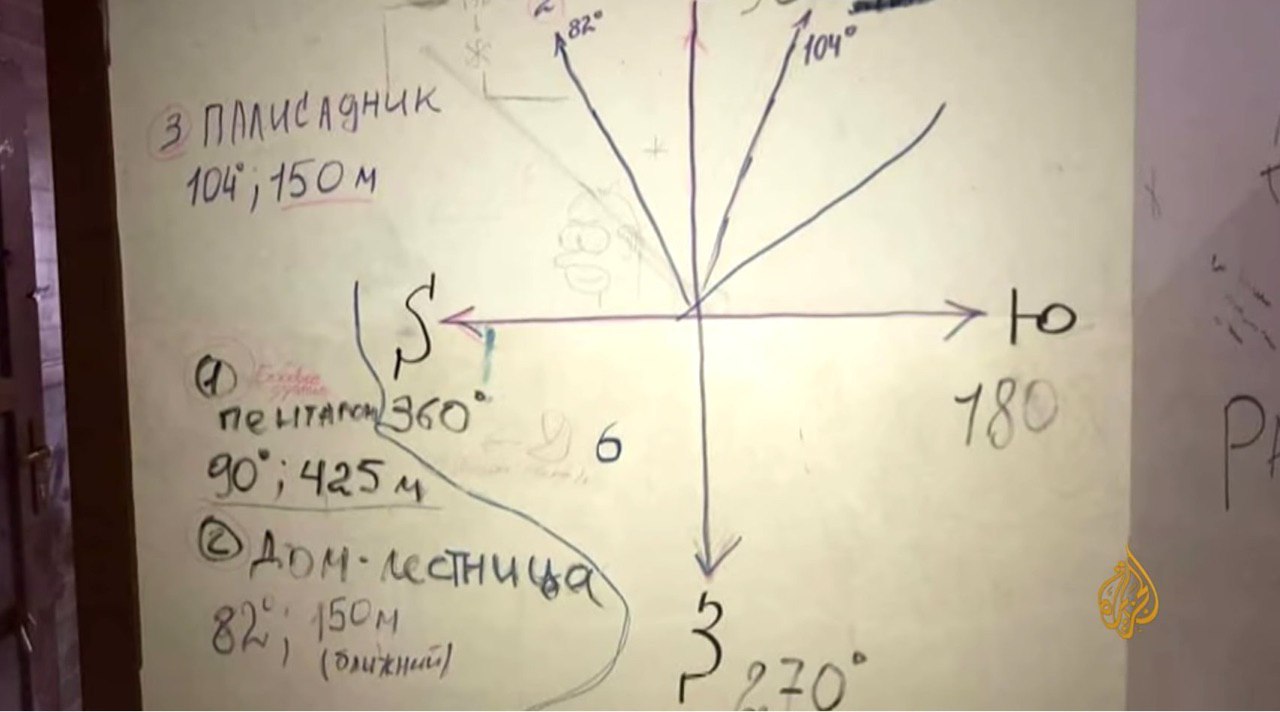 82°
104°
3 ПАЛИСАДНИК
104°; 150 м
Ю
180
1
ПЕНТАГОН 360°
90°; 425 м
6
2 ДОМ-ЛЕСТНИЦА
82°; 150 м
(ближний)
З
270°